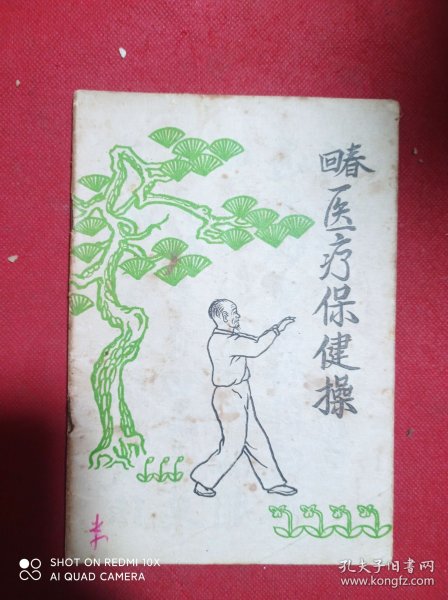 回春
医疗保健操
SHOT ON REDMI 10X
AI QUAD CAMERA
孔夫子旧书网
www.kongfz.com